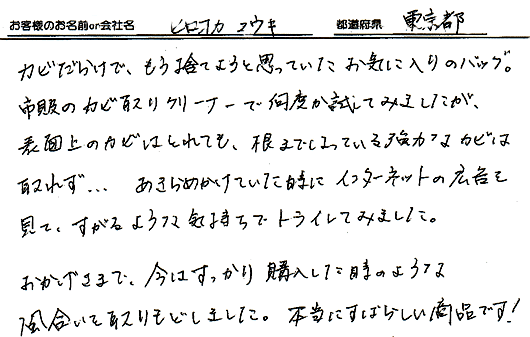 お客様のお名前or会社名 ヒロオカ ユウキ 都道府県 東京都
カビだらけで、もう捨てようと思っていたお気に入りのバッグ。
市販のカビ取りクリーナーで何度か試してみましたが、
表面上のカビはとれても、根まではっている強力なカビは
取れず… あきらめかけていた時にインターネットの広告を
見て、すがるような気持ちでトライしてみました。
おかげさまで、今はすっかり購入した時のような
風合いを取りもどしました。本当にすばらしい商品です!